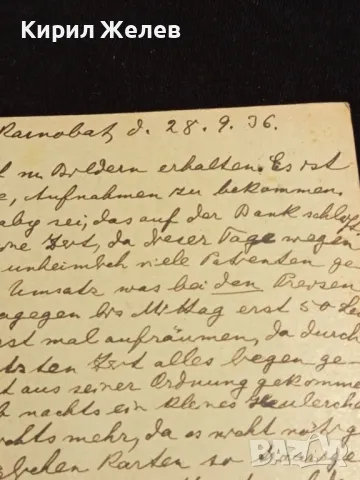 Кирил Желев
Karnobat, d. 28.9.36.
t m Bildern erhalten. Es ist
e, Aufnahmen zu bekommen.
aby sei, das auf der Bank schläft
öne Zeit, da dieser Tage wegen
unheimlich viele Patienten ge
Umsatz was bei den Preisen
agegen bis Mittag erst 50 Le
rst mal aufräumen, da durch
tzten Zeit alles liegen ge
t aus seiner Ordnung gekomme
t nachts ein kleines
chts mehr, da es nicht nötig
lichen Karten so
bazar